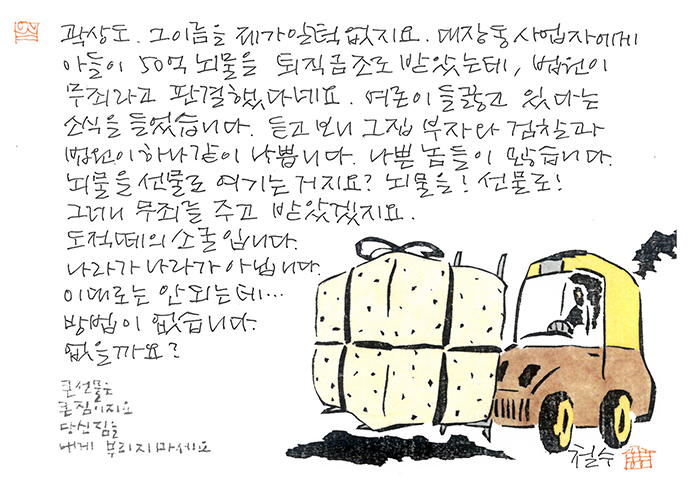 곽상도. 그이름을 제가알턱없지요. 대장동사업자에게
아들이 50억 뇌물을 퇴직금조로 받았는데, 법원이
무죄라고 판결했다네요. 여론이 들끓고 있다는
소식을 들었습니다. 듣고보니 그집 부자와 검찰과
법원이하나같이 나쁩니다. 나쁜 놈들이 많습니다.
뇌물을 선물로 여기는 거지요? 뇌물을! 선물로!
그러니 무죄를 주고 받았겠지요.
도적떼의 소굴입니다.
나라가 나라가 아닙니다.
이대로는 안되는데...
방법이 없습니다.
없을까요?
큰선물은
큰짐이지요
당신짐을
내게 부리지마세요
철수